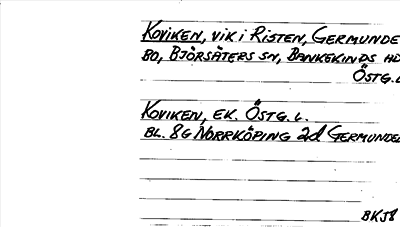 KOVIKEN, VIK I RISTEN, GERMUNDE
BO, BJÖRSÄTERS SN, BANKEKINDS HD
ÖSTG.L
KOVIKEN, EK. ÖSTG. L.
BL. 8G NORRKÖPING 2d GERMUNDEB
BKJ8